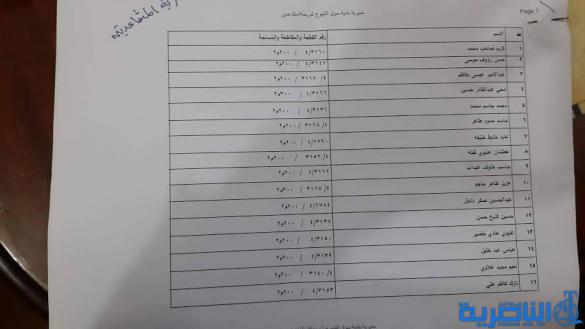 Page 1
مديرية بلدية سوق الشيوخ شريحة المتقاعدين
المتقاعدين
ت الاسم رقم القطعة والمقاطعة والمساحة
١ كريم صاحب محمد ٤/٣١٦٠ / ٢٠٠م٢
٢ حسن رؤوف موسى ٤/٣١٤٧ / ٢٠٠م٢
٣ عبدالامير عيسى كاظم ٤/ ٣١٦٧ / ٢٠٠م٢
٤ محي عبدالقادر حسين ٤/٣١٦٦ / ٣٠٠م٢
٥ محمد جاسم محمد ٤/٣١٣٦ / ٢٠٠م٢
٦ جاسم حمود طاهر ٤/ ٣١٦٨ / ٢٠٠م٢
٧ عايد خليفه ٤/١٧٩٠ / ٢٠٠م٢
٨ عطشان عليوي لفته ٤/ ٣١٥٢ / ٢٠٠م٢
٩ جاسب خلوف عبدالله ٤/٣١٦٢ / ٢٠٠م٢
١٠ عزيز طاهر جاجم ٤/ ٣١٦٥ / ٣٠٠م٢
١١ عبدالحسين صكر داخل ٤/١٧٨٤ / ٢٠٠م٢
١٢ حسين فليح حسن ٤/٣١٣٤ / ٢٠٠م٢
١٣ عليوي هادي خضير ٤/٣١٥٠ / ٢٠٠م٢
١٤ عباس عبد خليل ٤/٣١٣٩ / ٢٠٠م٢
١٥ نعيم مجيد علاوي ٤/ ٣١٤٠ / ٢٠٠م٢
١٦ تارك كاظم علي ٤/٣١٥٣ / ٢٠٠م٢
الناصرية